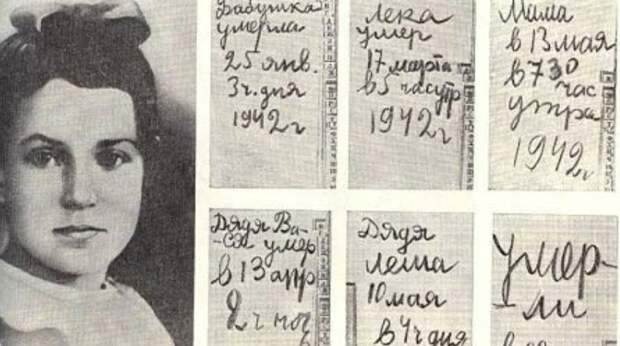 Бабушка
умерла
25 янв.
3 ч. дня
1942 г
Лека
умер
17 марта
в 5 часутр
1942 г
Мама
в 13 мая
в 7 30
час
утра
1942 г
Дядя Ва-
ся умер
в 13 апр
2 ч ноч
Дядя
Леша
10 мая
в 4 ч дня
умер-
ли